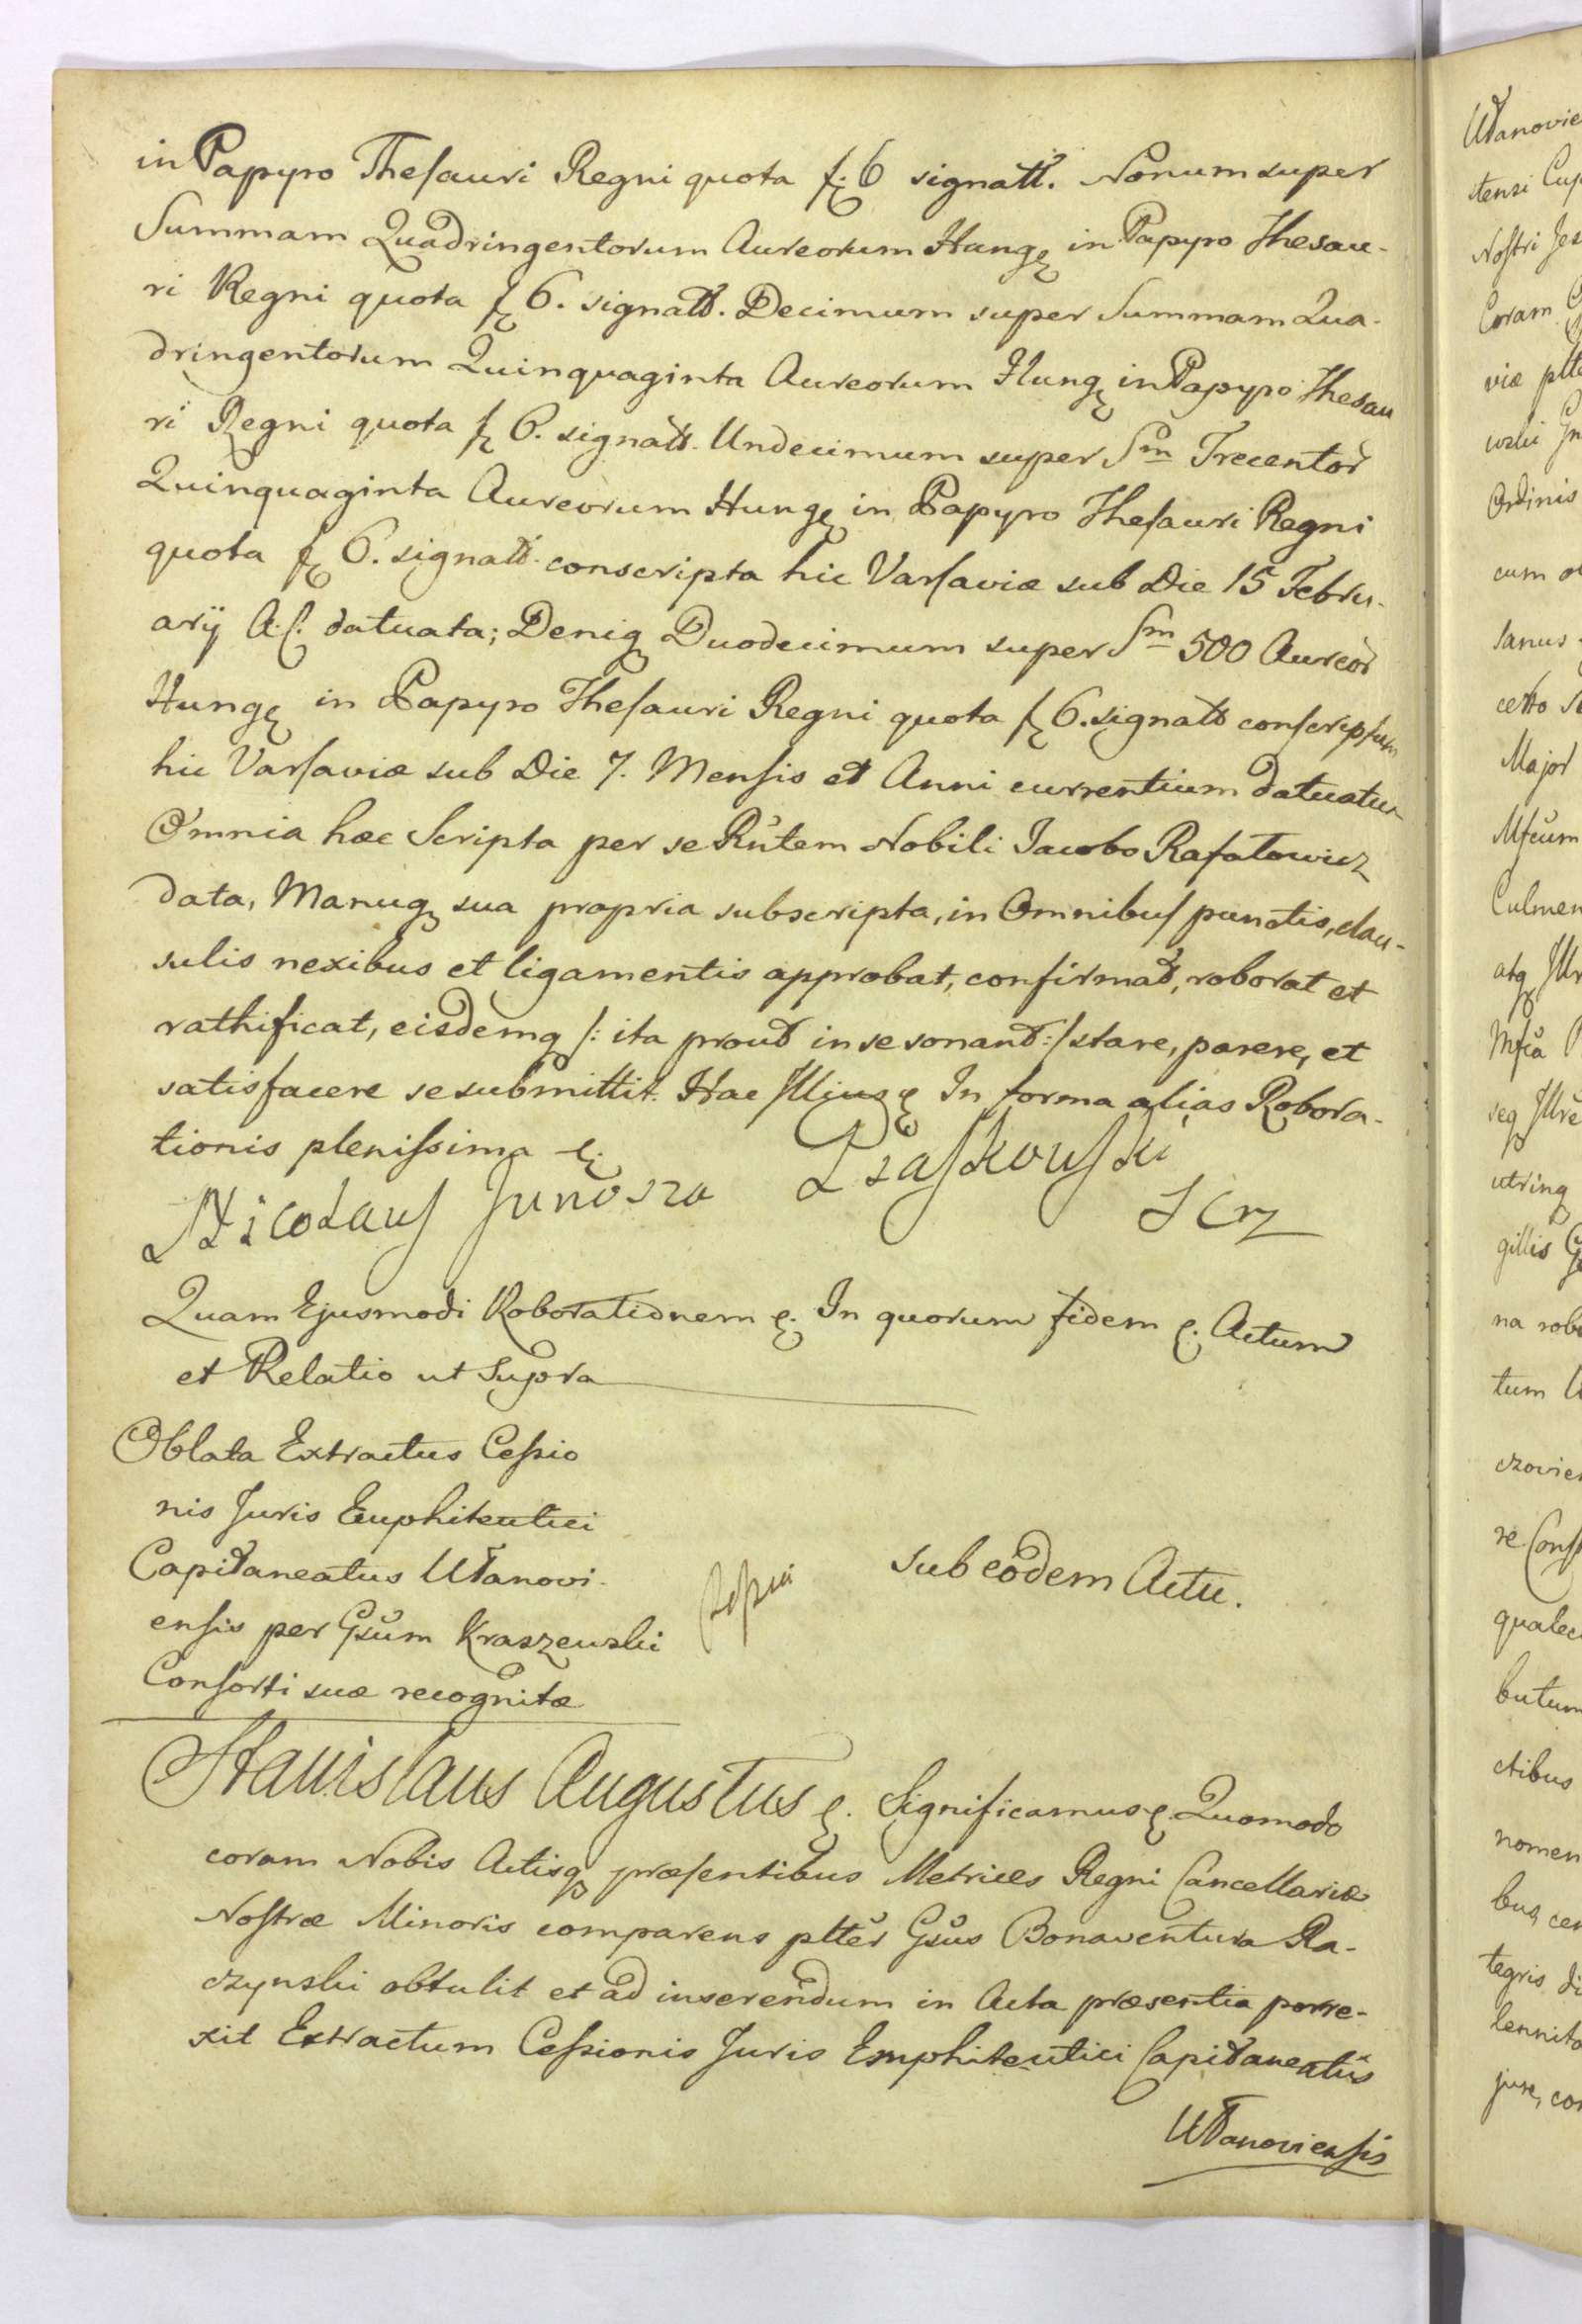 in Papyro Thesauri Regni quota f. 6 signatt. Nonum super
Summam Quadringentorum Aureorum Hung. in Papyro Thesau-
ri Regni quota f. 6. signatt. Decimum super Summam Qua-
dringentorum Quinquaginta Aureorum Hung. in Papyro Thesau
ri Regni quota f. 6. signatt. Undecimum super Sm Trecentor
Quinquaginta Aureorum Hung. in Papyro Thesauri Regni
quota f. 6. signatt. conscripta hic Varsaviæ sub Die 15 Febru-
arij A. C. datuata; Deniq Duodecimum super Sm 500 Aureor
Hung. in Papyro Thesauri Regni quota f. 6. signatt conscriptum
hic Varsaviæ sub Die 7. Mensis et Anni currentium datuatum
Omnia hæc Scripta per se Rntem Nobili Jacobo Rafałowicz
data, Manuq sua propria subscripta, in Omnibus punctis, clau-
sulis nexibus et ligamentis approbat, confirmat, roborat et
rathificat, eisdemq /: ita prout in se sonant :/ stare, parere, et
satisfacere se submittit. Hac In forma alias Robora-
tionis plenissima
Nicolaus Junosza Piaskouski
Quam Ejusmodi Roborationem In quorum fidem Actum
et Relatio ut Supra
Oblata Extractus Cessio
nis Juris Emphiteutici
Capitaneatus Utanovi-
ensis per Gsum Kraszewski
Consorti suæ recognitæ
sub eodem Actu.
Stanislaus Augustus Significamus Quomodo
coram Nobis Actisq præsentibus Metrices Regni Cancellariæ
Nostræ Minoris comparens pltter Gsus Bonaventura Ra-
czynski obtulit et ad inserendum in Acta præsentia porre-
xit Extractum Cessionis Juris Emphiteutici Capitaneatus
Utanoviensis
Utanovie
Nostri
Coram
viæ
Ordinis
cum
Major
Mfcum
Culmen
utrinq
gillis
tum
re
butum
ctibus
nomen
tegris